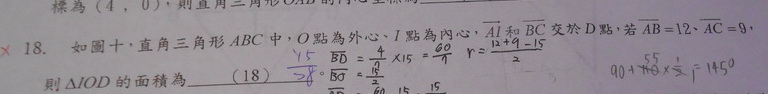 標為(4,0),則直角三角形OAB的內心坐標為
× 18. 如圖十,直角三角形ABC中,O點為外心、I點為內心,AI和BC交於D點,若AB=12、AC=9,
則△IOD的面積為 (18) 15/28 。
BD = 4/7 ×15 = 60/7 r = (12+9-15)/2
BO = 15/2
90+ 55 110 × 1/2 = 145°
60 15 15